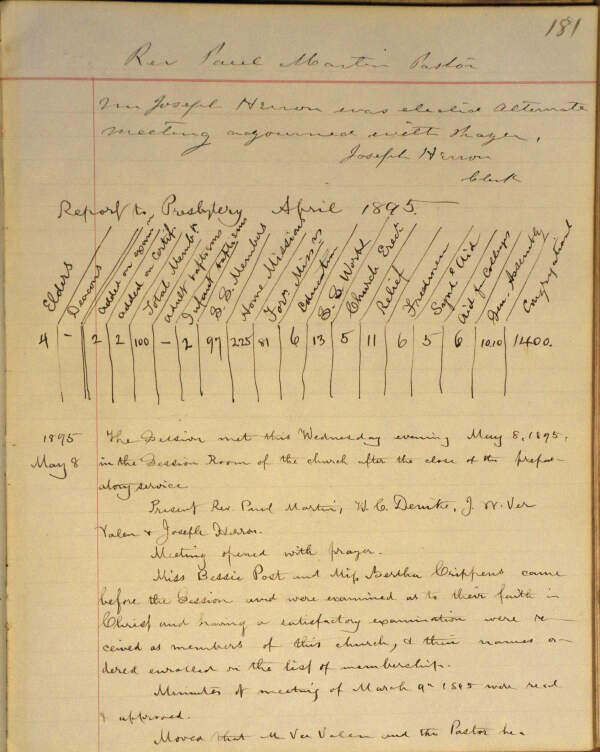 181
Rev Paul Martin Pastor
Mr Joseph Herron was elected Alternate
Meeting adjourned with Prayer.
Joseph Herron
Clerk
Report to Presbytery April 1895.
Elders
Deacons
added on exam
added on Certif
Total Members
adult baptisms
Infant baptisms
S.S. Members
Home Missions
For. Missns
Education
S.S. Work
Church Erect
Relief
Freedmen
Synd & Aid
Aid for Colleges
Gen. Assembly
Congregational
4 - 2 2 100 - 2 97 225 81 6 13 5 11 6 5 6 10.10 1400.
1895
May 8
The Session met this Wednesday evening May 8, 1895,
in the Session Room of the church after the close of the prepar-
atory service
Present Rev. Paul Martin, H. C. J. W. Ver
Valen & Joseph Herron.
Meeting opened with prayer.
Miss Bessie Post and Miss Bertha Crippens came
before the Session and were examined as to their faith in
Christ and having a satisfactory examination were re-
ceived as members of this church, & their names or-
dered enrolled on the list of membership.
Minutes of meeting of March 9th 1895 were read
& approved.
Moved that Mr Ver Valen and the Pastor be